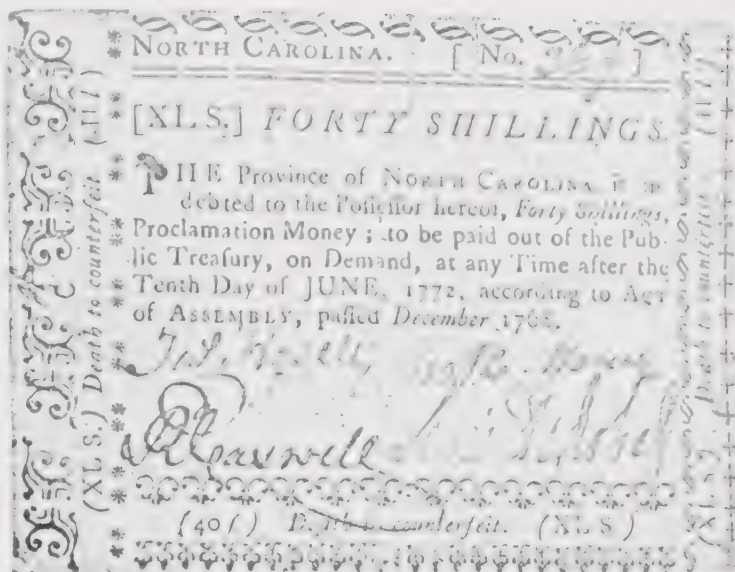 NORTH CAROLINA. [ No. ]
[XLS.] FORTY SHILLINGS.
THE Province of NORTH CAROLINA is in
debted to the Possessor hereof, Forty Shillings,
Proclamation Money; to be paid out of the Pub-
lic Treasury, on Demand, at any Time after the
Tenth Day of JUNE, 1772, according to Act
of ASSEMBLY, passed December
(40s) Death to counterfeit. (XLS)
(XLS.) Death to counterfeit
(XLS) Death to counterfeit